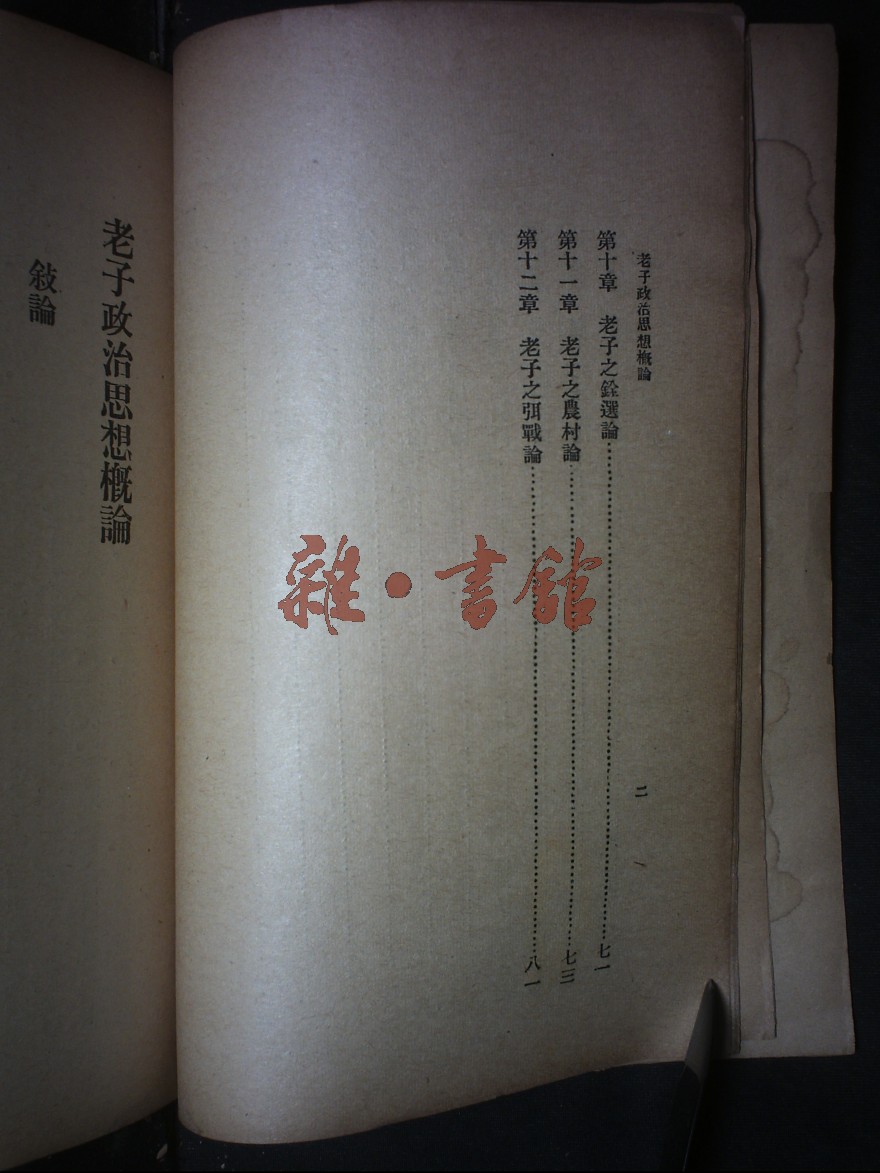 老子政治思想槪論
第十章　老子之銓選論……七一
第十一章　老子之農村論……七三
第十二章　老子之弭戰論……八一
二
雜·書館
老子政治思想槪論
敍論